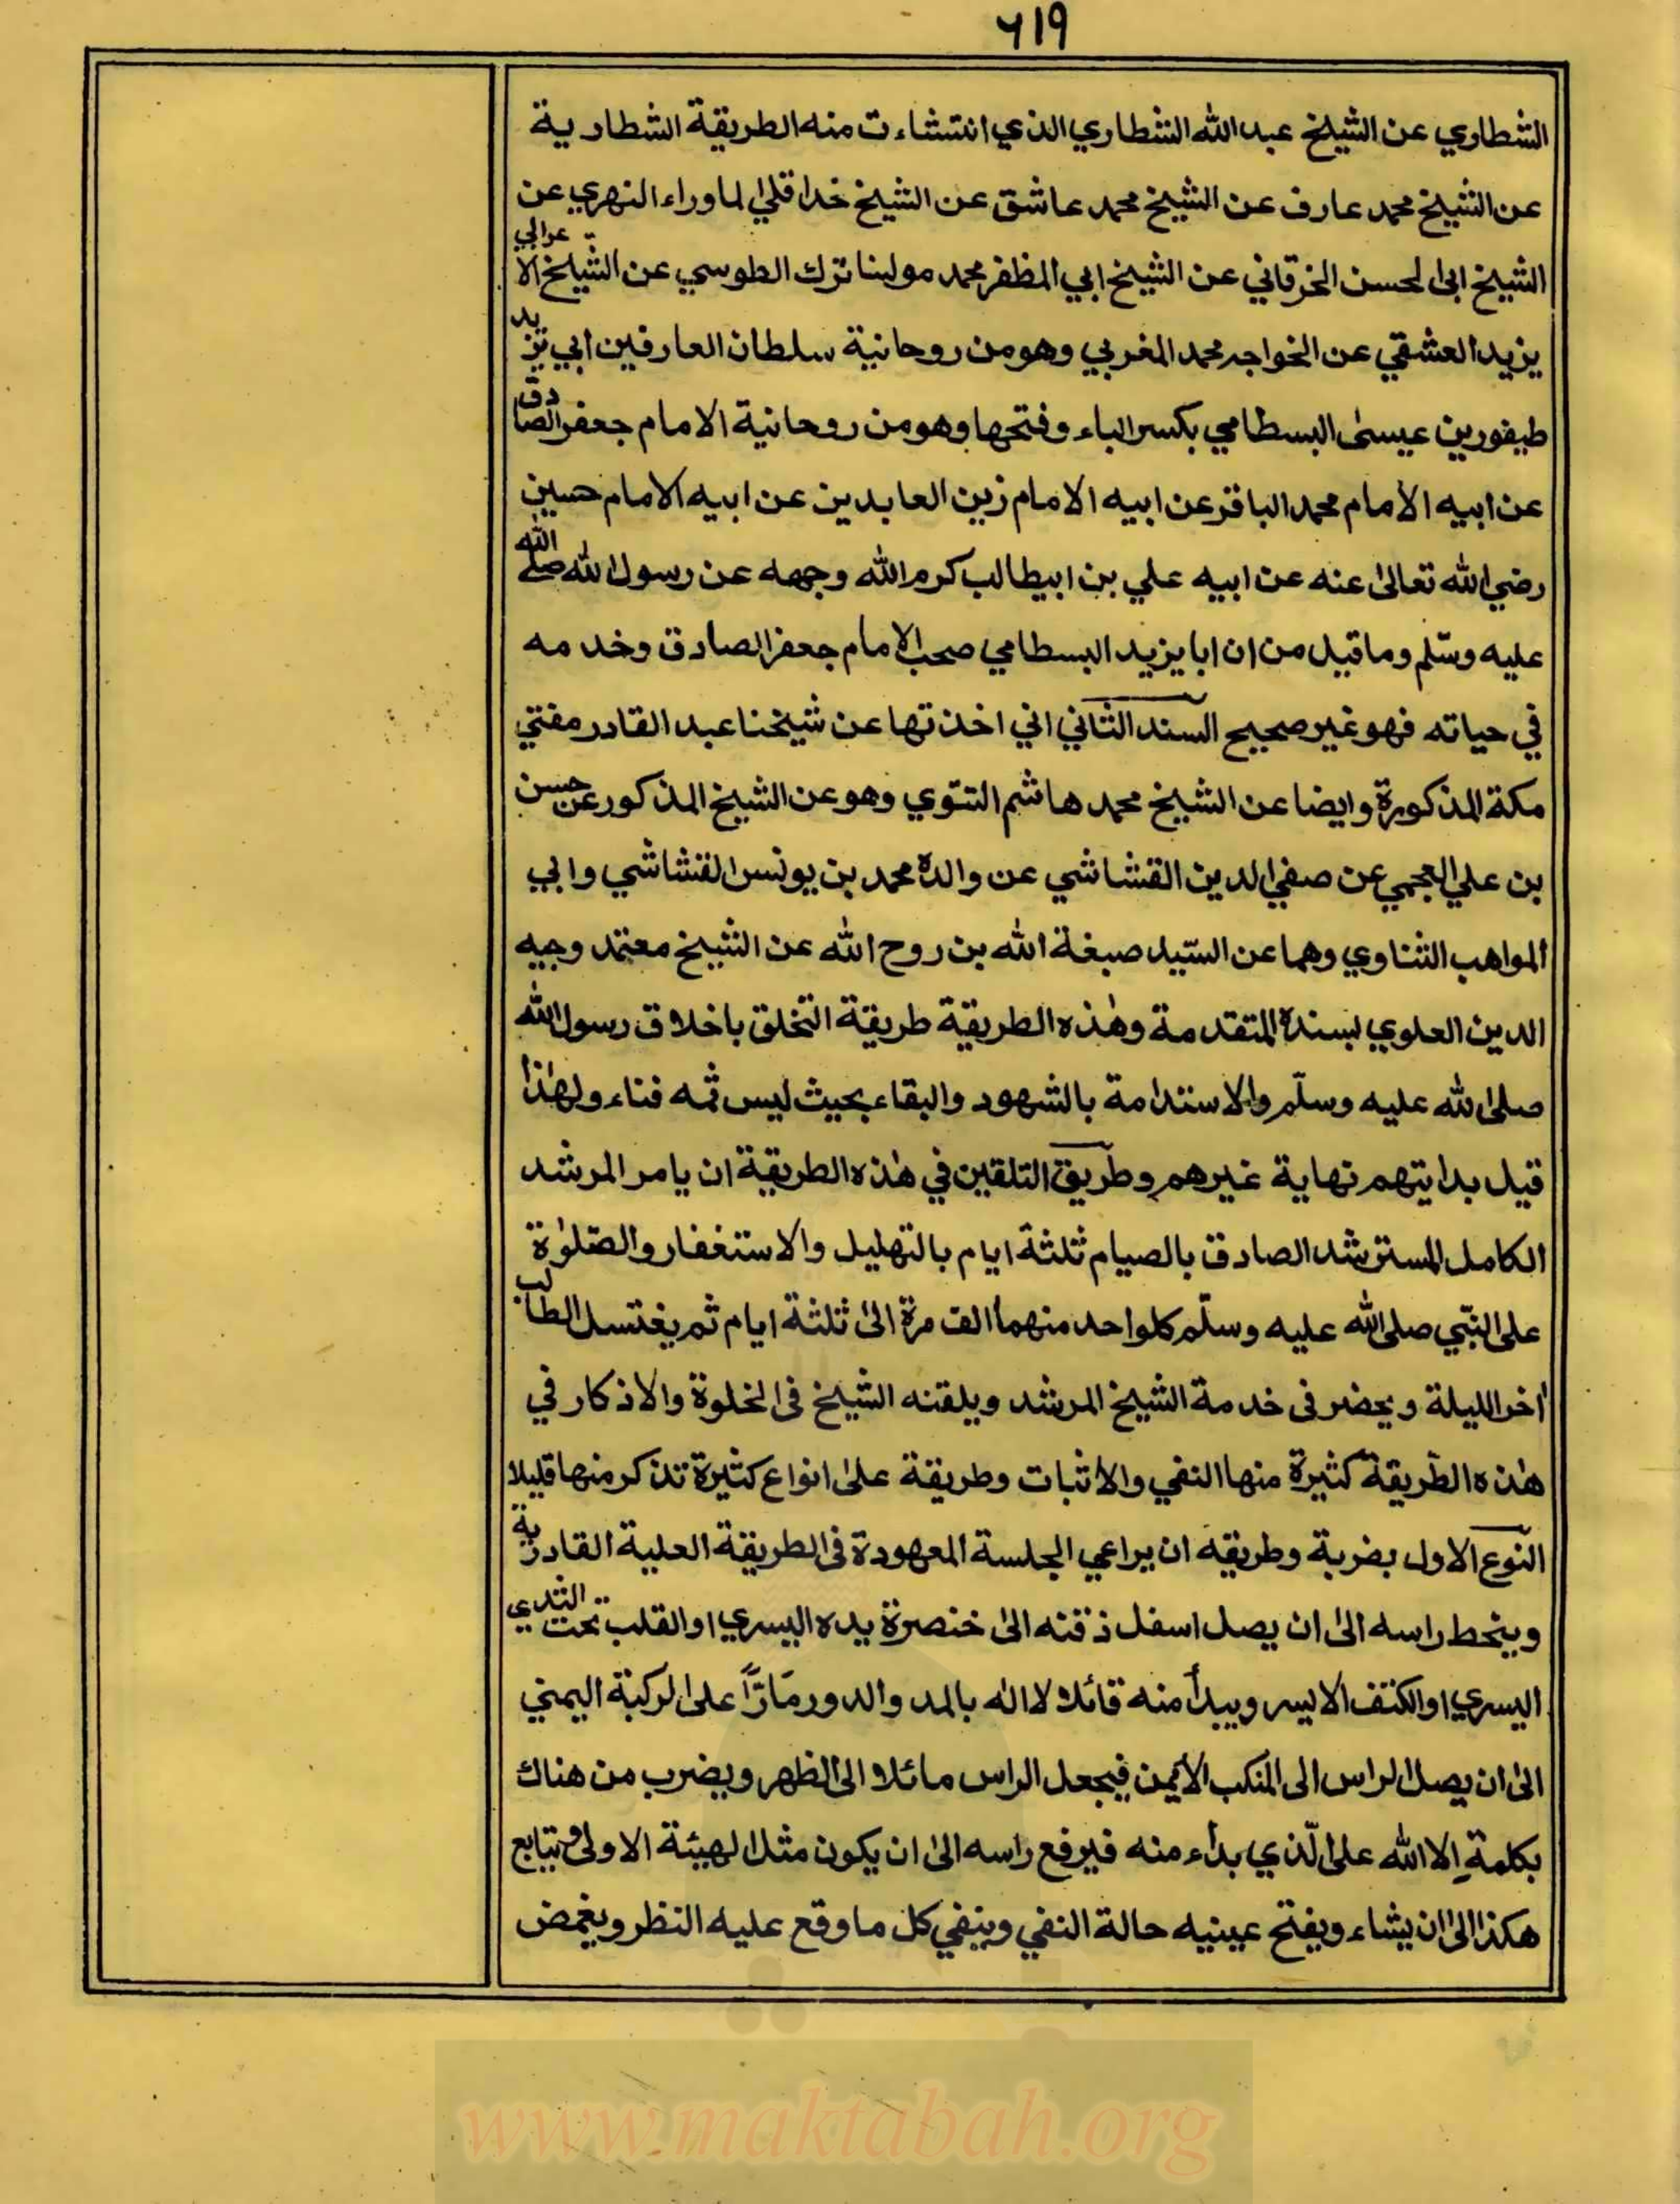 ٦١٩
الشطاري عن الشيخ عبد الله الشطاري الذي انتشاءت منه الطريقة الشطارية
عن الشيخ محمد عارف عن الشيخ محمد عاشق عن الشيخ خدا قلي الماوراء النهري عن
الشيخ ابي الحسن الخرقاني عن الشيخ ابي المظفر محمد مولينا ترك الطوسي عن الشيخ الاعرابي
يزيد العشقي عن الخواجه محمد المغربي وهو من روحانية سلطان العارفين ابي يزيد
طيفور بن عيسىٰ البسطامي بكسر الباء وفتحها وهو من روحانية الامام جعفر الصادق
عن ابيه الامام محمد الباقر عن ابيه الامام زين العابدين عن ابيه الامام حسين
رضي الله تعالىٰ عنه عن ابيه علي بن ابيطالب كرم الله وجهه عن رسول الله صلى الله
عليه وسّلم وما قيل من ان ابا يزيد البسطامي صحب الامام جعفر الصادق وخدمه
في حياته فهو غير صحيح السند الثاني اني اخذتها عن شيخنا عبد القادر مفتي
مكة المذكورة وايضا عن الشيخ محمد هاشم التتوي وهو عن الشيخ المذكور عن حسن
بن علي العجمي عن صفي الدين القشاشي عن والده محمد بن يونس القشاشي وابي
المواهب الشناوي وهما عن السّيد صبغة الله بن روح الله عن الشيخ معتمد وجيه
الدين العلوي بسنده المتقدمة وهٰذه الطريقة طريقة التخلق باخلاق رسول الله
صلى الله عليه وسلّم والاستدامة بالشهود والبقاء بحيث ليس ثمه فناء ولهٰذا
قيل بدايتهم نهاية غيرهم وطريق التلقين في هٰذه الطريقة ان يامر المرشد
الكامل المسترشد الصادق بالصيام ثلثة ايام بالتهليل والاستغفار والصّلوٰة
على النّبي صلى الله عليه وسلّم كلواحد منهما الف مرة الىٰ ثلثة ايام ثم يغتسل الطالب
اٰخر الليلة ويحضر فى خدمة الشيخ المرشد ويلقنه الشيخ فى الخلوة والاذكار في
هٰذه الطّريقة كثيرة منها النفي والاثبات وطريقة علىٰ انواع كثيرة تذكر منها قليلا
النّوع الاول بضربة وطريقه ان يراعي الجلسة المعهودة فى الطريقة العلية القادرية
وينحط راسه الىٰ ان يصل اسفل ذقنه الىٰ خنصرة يده اليسري او القلب تحت الثدي
اليسري او الكتف الايسر ويبدأ منه قائلا لا اله بالمد والدور مَارّاً على الركبة اليمني
الىٰ ان يصل الراس الى المنكب الايمن فيجعل الراس مائلا الى الظهر ويضرب من هناك
بكلمةِ الا الله على الّذي بدأء منه فيرفع راسه الىٰ ان يكون مثل الهيئة الاولىٰ ويتابع
هكذا الىٰ ان يشاء ويفتح عينيه حالة النفي وينفي كل ما وقع عليه النظر ويغمض
www.maktabah.org